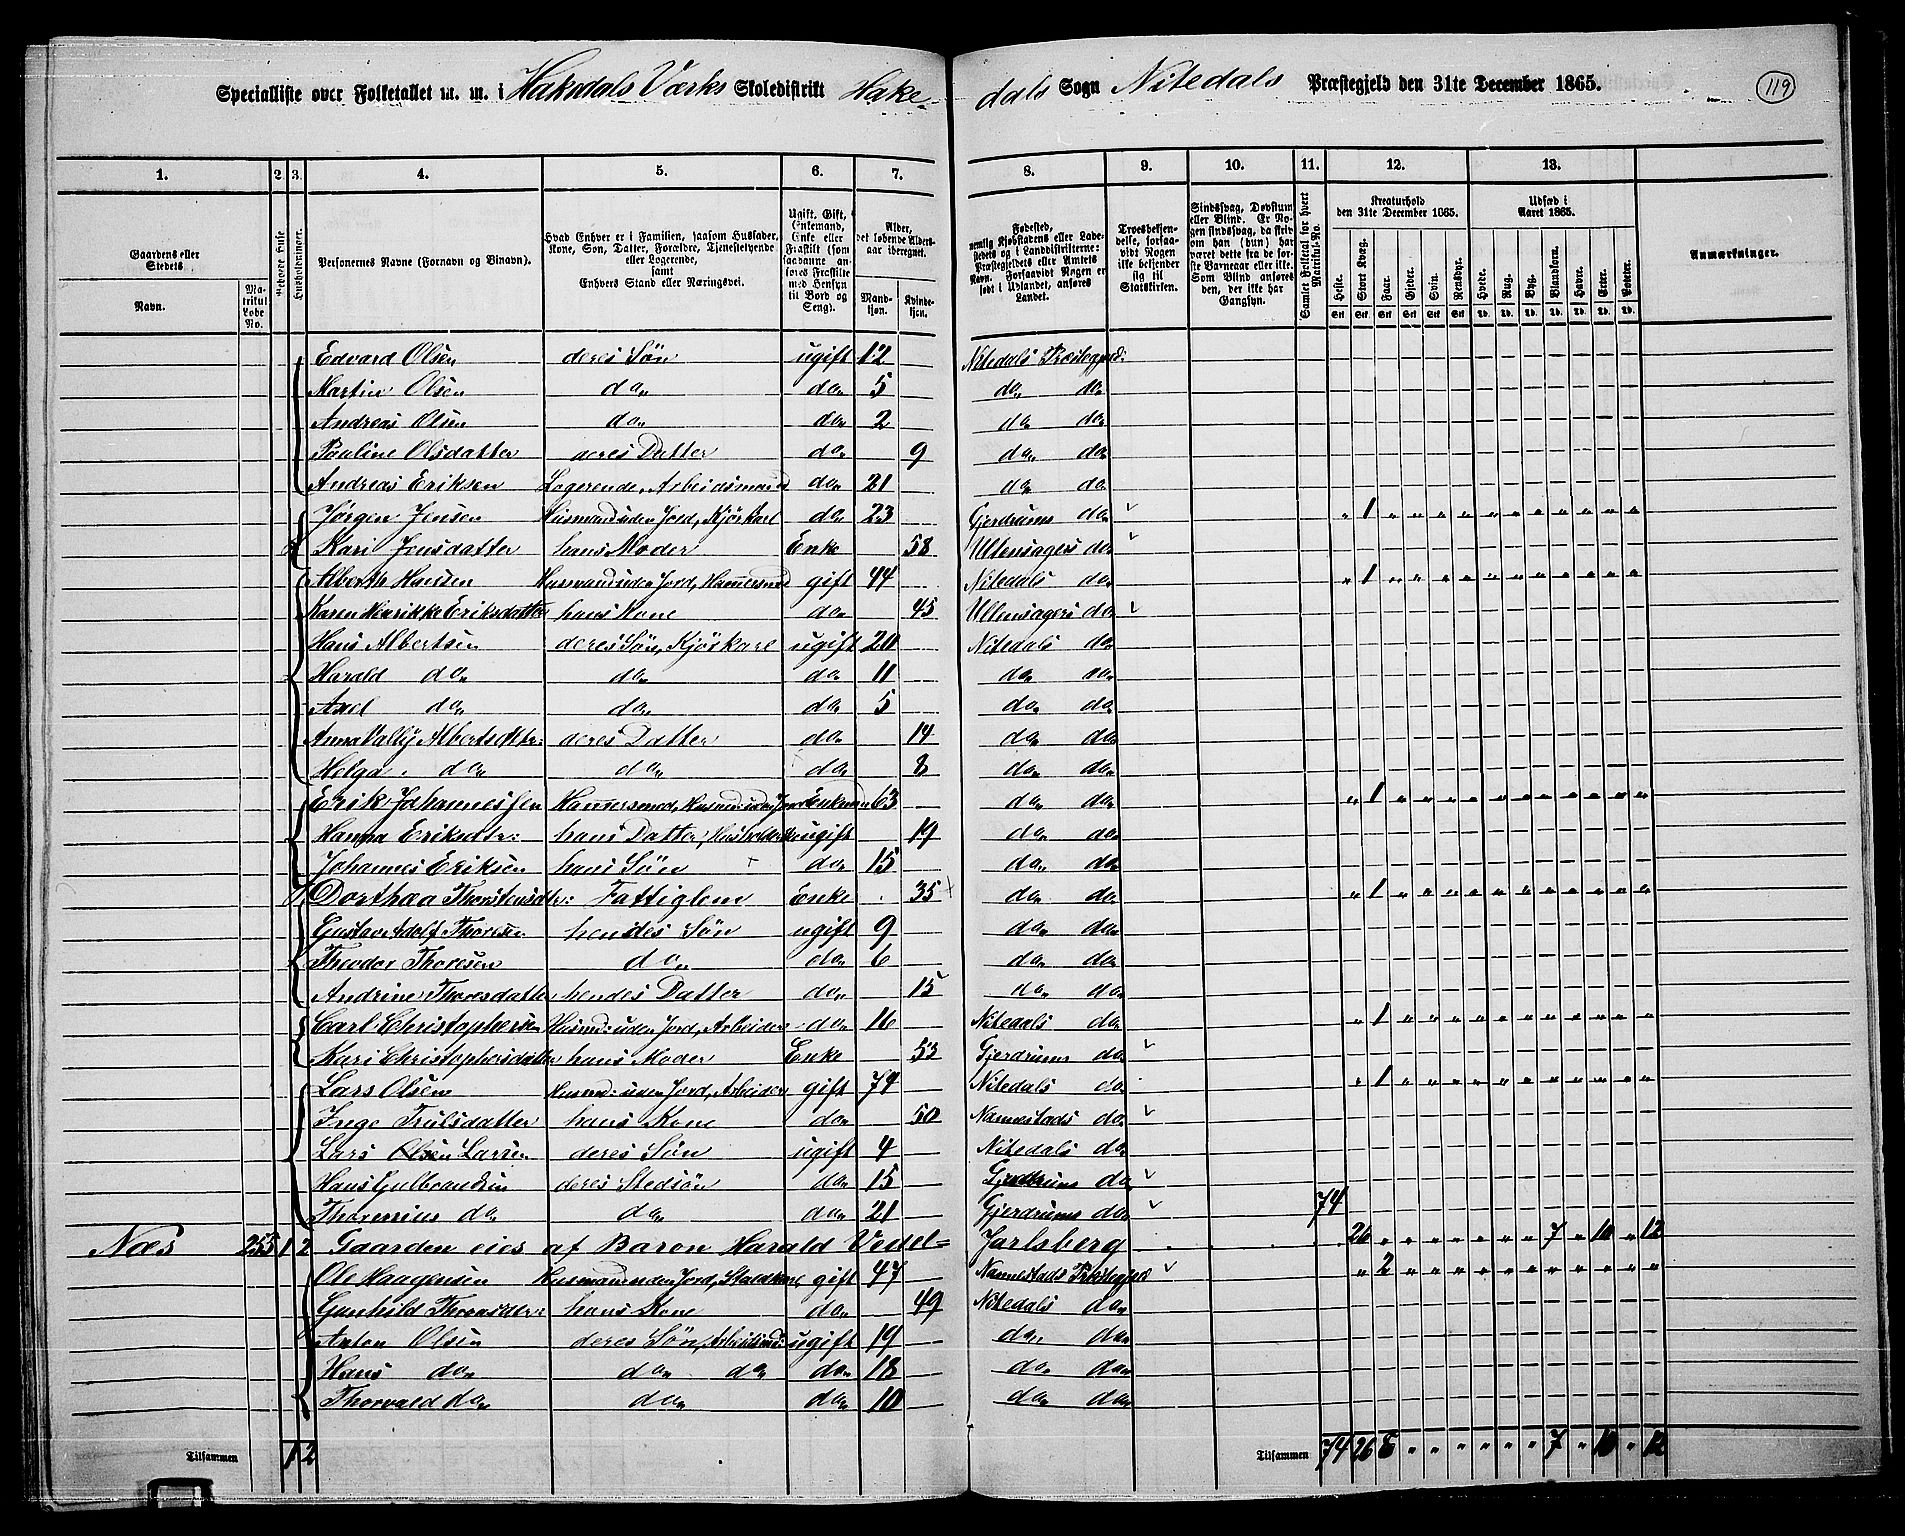 Specialliste over Folketallet m. m. i Hakedals Værks Skoledistrikt Hakedals Sogn Nitedals Præstegjeld den 31te December 1865. 119
1. 2. 3. 4. 5. 6. 7. 8. 9. 10. 11. 12. 13.
Gaardens eller Stedets Navn. Matrikul Løbe No.
Beboede Huse
Husholdninger.
Personernes Navne (Fornavn og Binavn).
Hvad Enhver er i Familien, saasom Husfader, Kone, Søn, Datter, Forældre, Tjenestetyende eller Logerende, samt Enhvers Stand eller Næringsvei.
Ugift, Gift, Enkemand, Enke eller Fraskilt (som saadanne anføres Fraskilte med Hensyn til Bord og Seng).
Alder, det løbende Alders-aar iberegnet. Mandkjøn. Kvindekjøn.
Fødested, nemlig Kjøbstadens eller Ladestedets og i Landdistrikterne: Præstegjeldets eller Amtets Navn. Forsaavidt Nogen er født i Udlandet, anføres Landet.
Troesbekjendelse, forsaavidt Nogen ikke bekjender sig til Statskirken.
Sindssvag, Døvstum eller Blind. Er Nogen sindssvag, da skriv om han (hun) har været dette fra de første Barneaar eller ikke. Som Blind anføres den, der ikke har Gangsyn.
Samlet Folketal for hvert Matrikul-No.
Kreaturhold den 31te December 1865.
Heste. Stort Kvæg. Faar. Gjeder. Svin. Rensdyr.
Udsæd i Aaret 1865.
Hvede. Rug. Byg. Blandkorn. Havre. Erter. Poteter.
Anmærkninger.
Edvard Olsen deres Søn ugift 12 Nitedals Præstegjeld:
Martin Olsen do do 5 do do
Andreas Olsen do do 2 do do
Pauline Olsdatter deres Datter do 9 do do
Andreas Eriksen Logerende, Arbeidsmand do 21 do do
Jørgen Jensen Husmand uden Jord, Kjørkarl do 23 Gjerdrums do " 1 " " " " " " " " " " "
Kari Jensdatter hans Moder Enke 58 Ullensagers do
Alberth Hansen Husmand uden Jord, Hammersmed gift 44 Nitedals do " 1 " " " " " " " " " " "
Karen Henrikke Eriksdatter hans Kone do 45 Ullensagers do
Hans Albertsen deres Søn, Kjørkarl ugift 20 Nitedals do
Harald do do do 11 do do
Axel do do do 5 do do
Anna Vally Albertsdtr: deres Datter do 14 do do
Helga do do do 8 do do
Erik Johannessen Hammersmed, Husmd uden Jord Enkemd 63 do do " 1 " " " " " " " " " " "
Hanna Eriksdtr: hans Datter, ugift 19 do do
Johannes Eriksen hans Søn do 15 do do
Dorthea Thorstensdtr: Fattiglem Enke 35 do do " 1 " " " " " " " " " " "
Gustav Adolf Thoresen hendes Søn ugift 9 do do
Theodor Thoresen do do 6 do do
Andrine Thoresdatter hendes Datter do 15 do do
Carl Christophersen Husmd: uden Jord, Arbeider do 16 Nitedals do " 1 " " " " " " " " " " "
Kari Christophersdatter hans Moder Enke 53 Gjerdrums do
Lars Olsen Husmd: uden Jord, Arbeider gift 74 Nitedals do " 1 " " " " " " " " " " "
Inge Trulsdatter hans Kone do 50 Nannestads do
Lars Olsen Larsen deres Søn ugift 4 Nitedals do
Hans Gulbrandsen deres Stedsøn do 15 Gjerdrums do
Thorenius do do do 21 Gjerdrums do 74
Næs 255 1 2 Gaarden eies af Baron Harald Vedel= Jarlsberg 26 " " " " " " " 7 " 10 " 12
Ole Haagensen Husmand uden Jord, Staldkarl gift 47 Nannestads Præstegjeld " 2 " " " " " " " " " " "
Gunhild Thoresdtr: hans Kone do 49 Nitedals do
Anton Olsen deres Søn, Arbeidsmd: ugift 19 do do
Hans do do do do 18 do do
Thorvald do do do 10 do do
Tilsammen 1 2 Tilsammen 74 26 8 " " " " " " 7 " 10 " 12